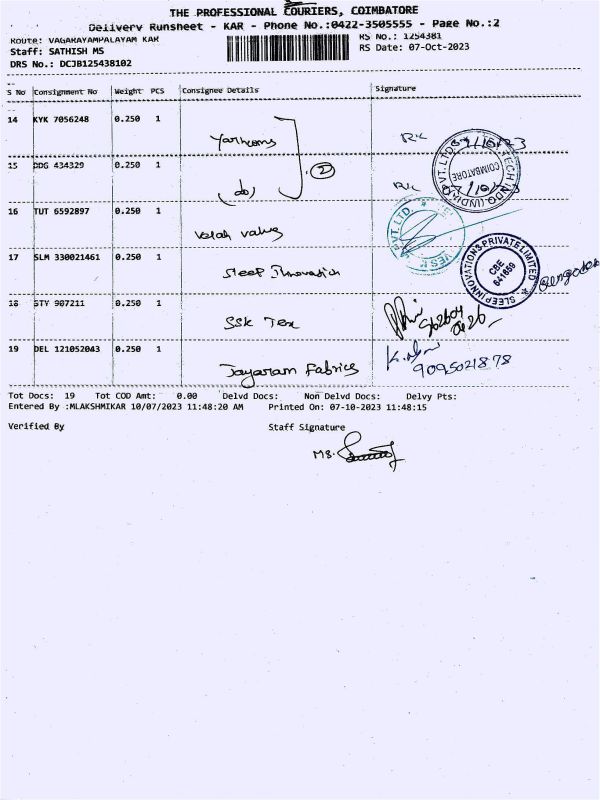 THE PROFESSIONAL COURIERS, COIMBATORE
Delivery Runsheet - KAR - Phone No.:0422-3505555 - Page No.:2
Route: VAGARAYAMPALAYAM KAR
RS No.: 1254381
Staff: SATHISH MS
RS Date: 07-Oct-2023
DRS No.: DCJB125438102
S No Consignment No Weight PCS Consignee Details Signature
14 KYK 7056248 0.250 1
15 DDG 434329 0.250 1 (do) (2)
16 TUT 6592897 0.250 1
17 SLM 330021461 0.250 1 Sleep Innovation
18 STY 907211 0.250 1 SSK Tex
19 DEL 121052043 0.250 1 Jayaram Fabrics 9095021878
COIMBATORE
PVT. LTD
SLEEP INNOVATIONS PRIVATE LIMITED
CBE
641659
Tot Docs: 19 Tot COD Amt: 0.00 Delvd Docs: Non Delvd Docs: Delvy Pts:
Entered By :MLAKSHMIKAR 10/07/2023 11:48:20 AM Printed On: 07-10-2023 11:48:15
Verified By Staff Signature
MS.